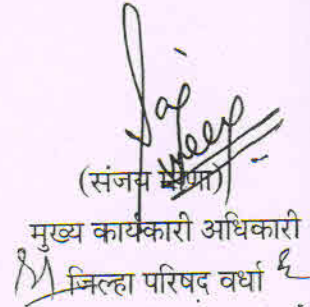 (संजय मीणा)
मुख्य कार्यकारी अधिकारी
जिल्हा परिषद वर्धा